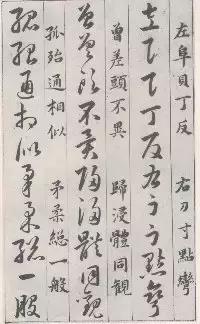 左阜貝丁反 右刀寸點彎
左阜貝丁反右刀寸點彎
曾差頭不異 歸浸體同觀
曾差頭不異歸浸體同觀
孤殆通相似 矛柔總一般
孤殆通相似矛柔總一般